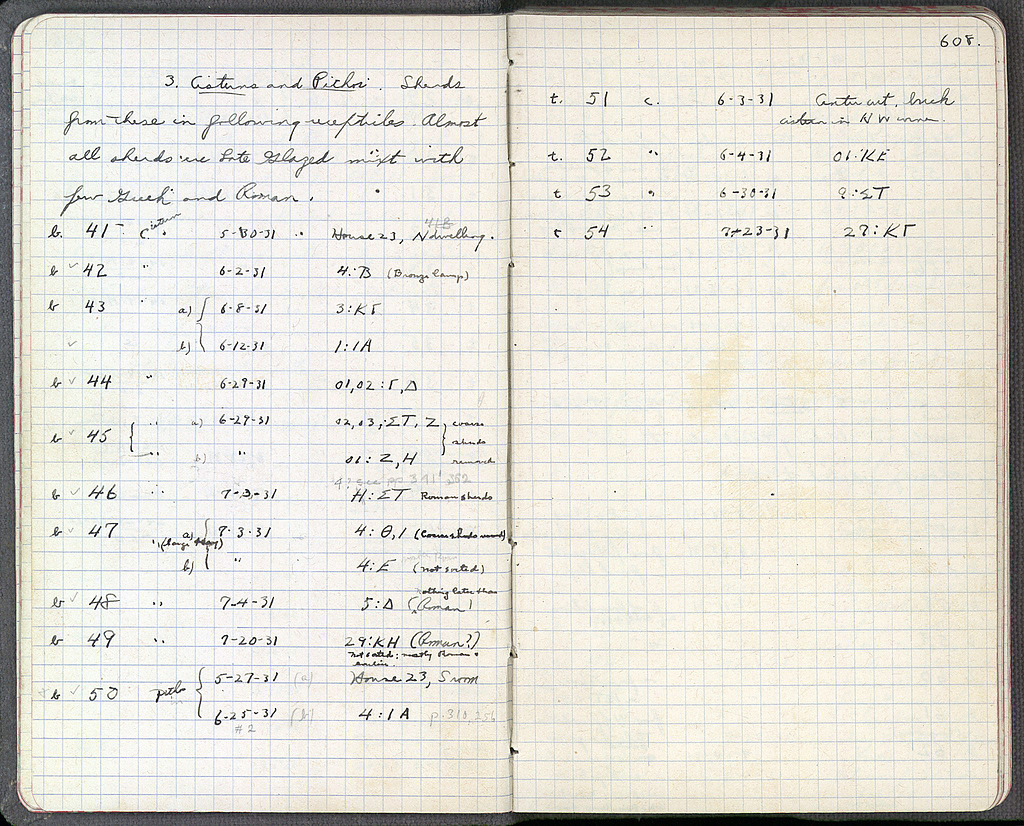 3. Cisterns and Pithoi. Sherds
from these in following receptacles. Almost
all sherds are Late Glazed mixt with
few Greek and Roman.
b. 41 Cistern 5-30-31 House 23, N dwelling.
b ✓ 42 " 6-2-31 4:B (Bronze lamp)
b 43 " a) 6-8-31 3:ΚΓ
✓ b) 6-12-31 1:ΙΑ
b ✓ 44 " 6-29-31 01,02:Γ,Δ
b ✓ 45 " a) 6-29-31 02,03:ΣΤ,Ζ coarse sherds
" b) " 01:Ζ,Η removed
4? see pp 341
b ✓ 46 " 7-3-31 Η:ΣΤ Roman sherds
b ✓ 47 a) 7-3-31 4:Θ,Ι (Coarse sherds removed)
" (large)
b) " 4:Ε (not sorted)
nothing later than
b ✓ 48 " 7-4-31 5:Δ (Roman)
b 49 " 7-20-31 29:ΚΗ (Roman?)
not dated; mostly Roman &
earlier.
b ✓ 50 pithos 5-27-31 (a) House 23, S room
6-25-31 (b) 4:ΙΑ p. 310, 256
#2
608.
t. 51 c. 6-3-31 Center cut, brick
cistern in NW corner.
t. 52 " 6-4-31 01:ΚΕ
t 53 " 6-30-31 9:ΣΤ
t 54 " 7-23-31 27:ΚΓ